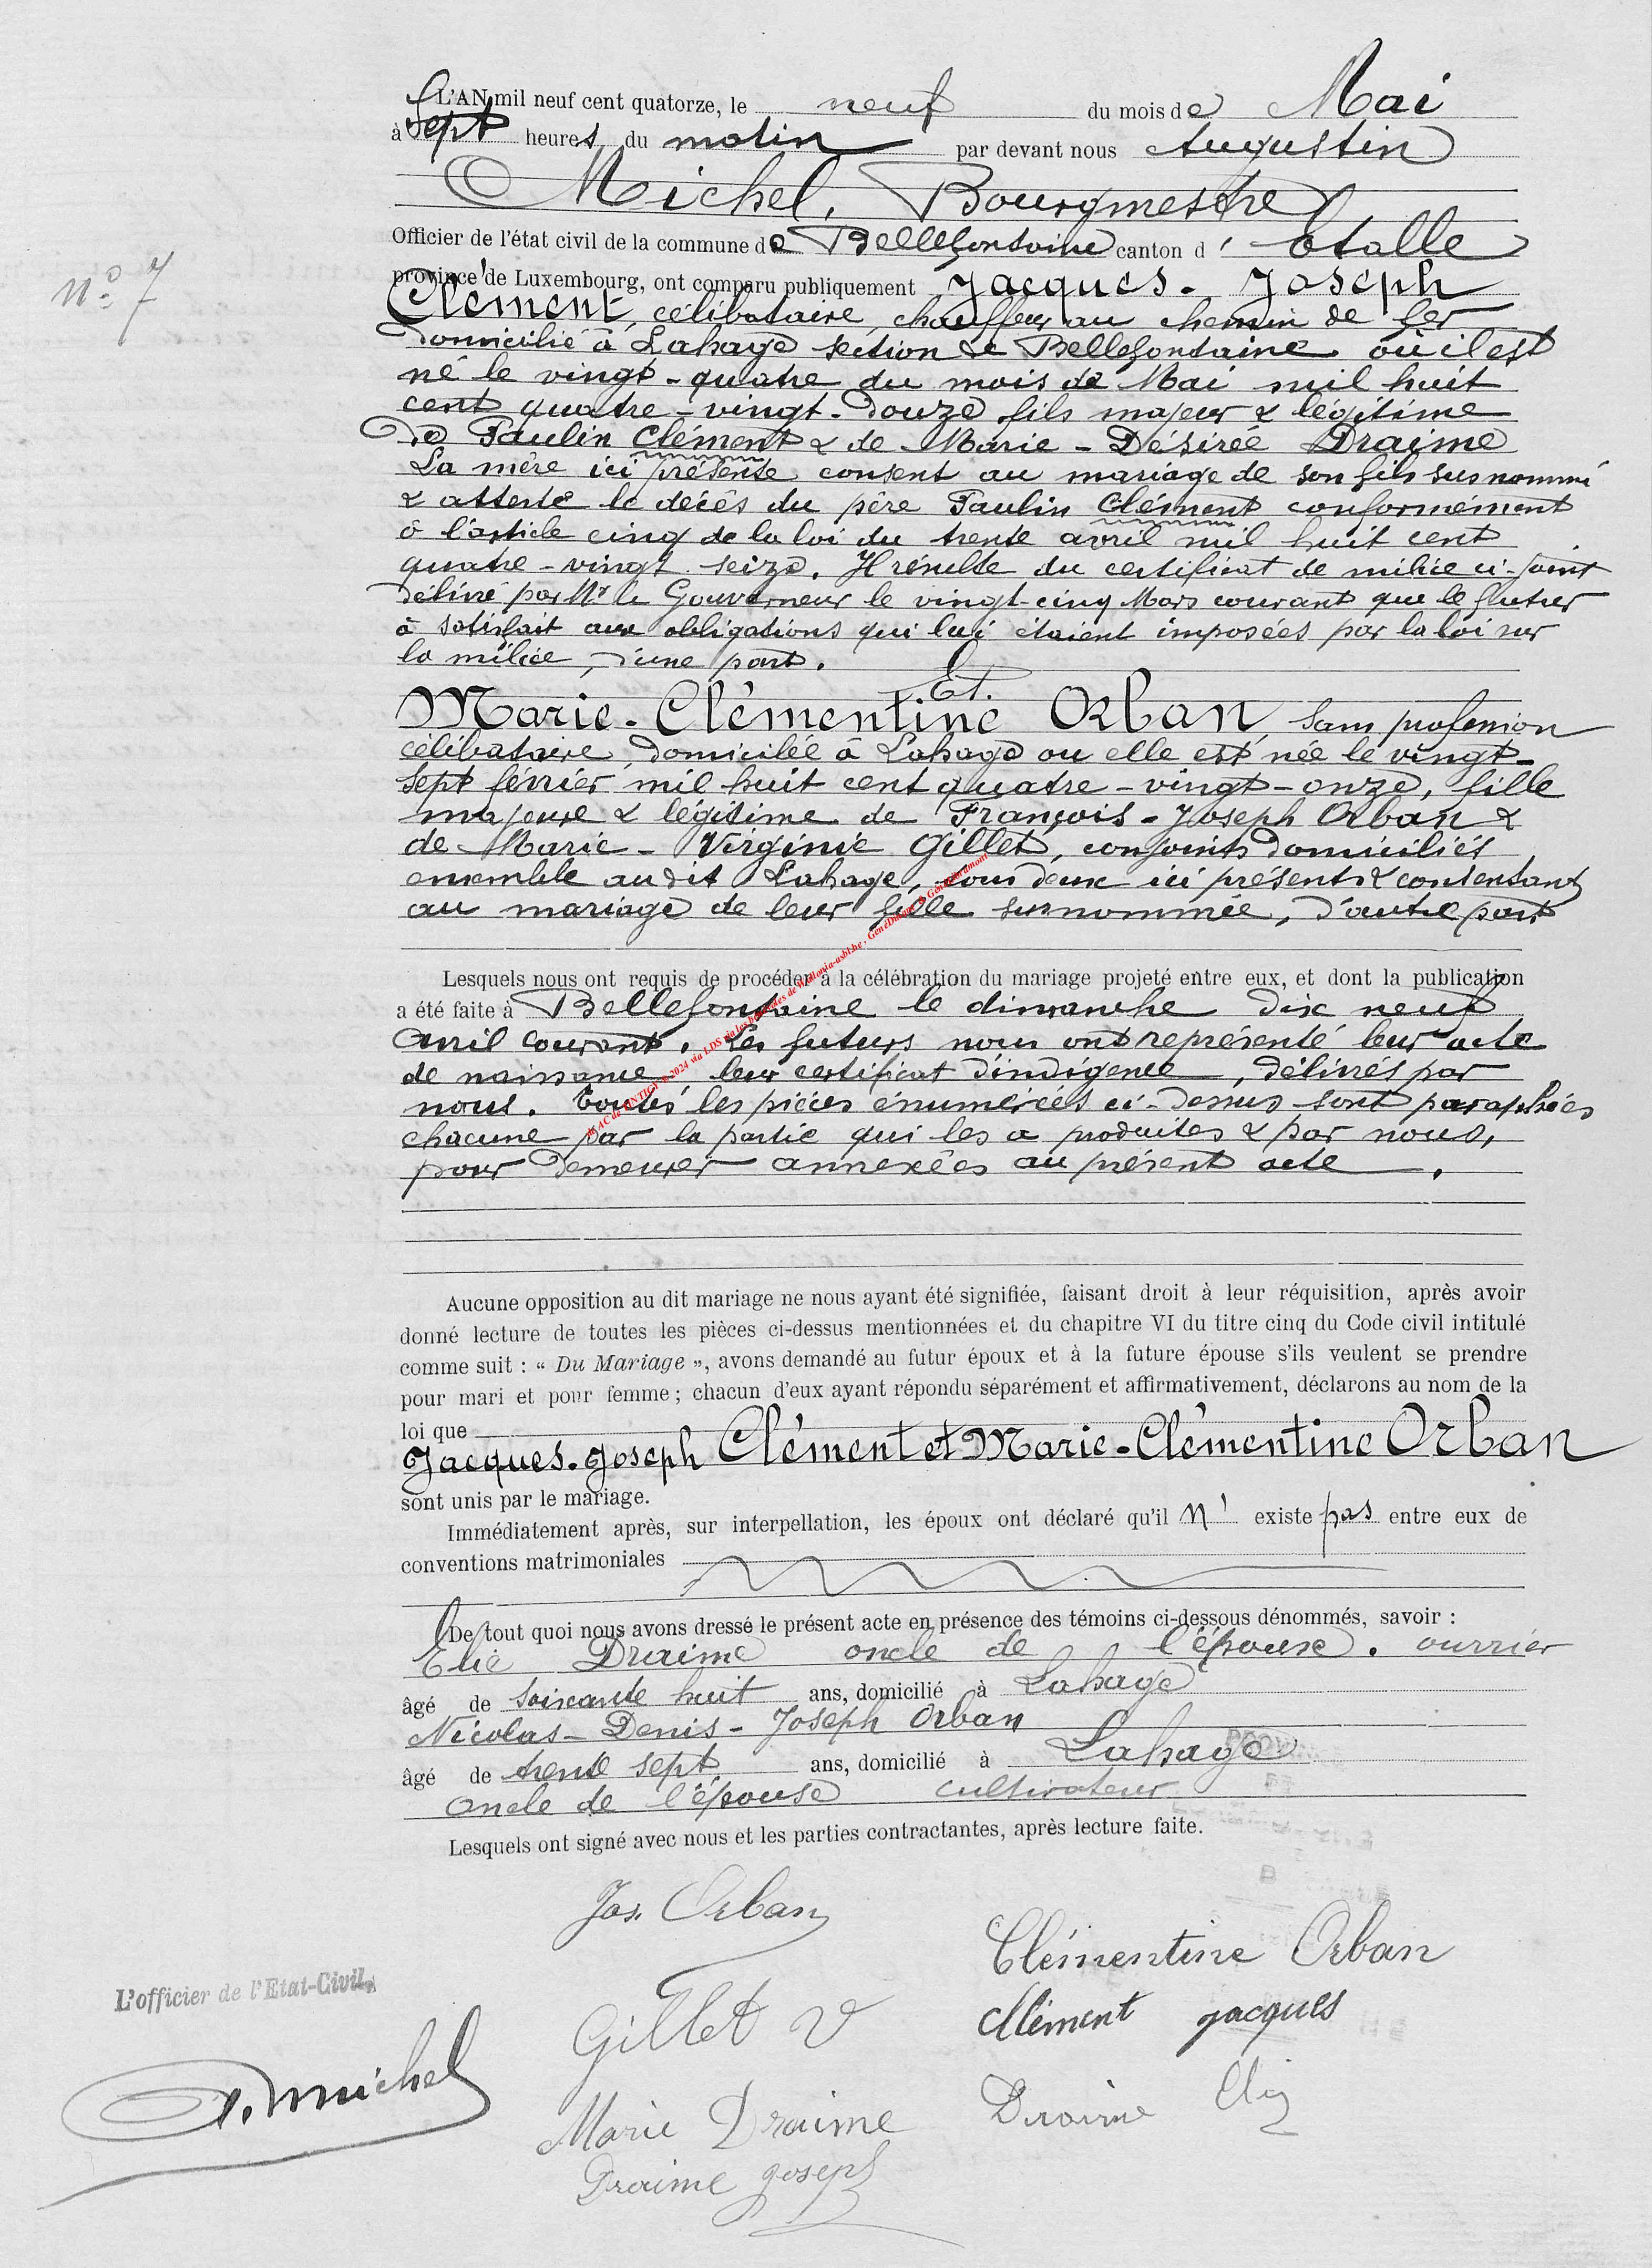 L'AN mil neuf cent quatorze, le neuf du mois de Mai
à Sept heures du matin par devant nous Augustin
Michel, Bourgmestre
Officier de l'état civil de la commune de Bellefontaine canton d' Etalle
province de Luxembourg, ont comparu publiquement Jacques-Joseph
N° 7
Clément, célibataire, chauffeur au chemin de fer
domicilié à Lahage section de Bellefontaine où il est
né le vingt-quatre du mois de Mai mil huit
cent quatre-vingt-douze fils majeur & légitime
de Paulin Clément & de Marie-Désirée Draime
La mère ici présente consent au mariage de son fils susnommé
& atteste le décès du père Paulin Clément conformément
à l'article cinq de la loi du trente avril mil huit cent
quatre-vingt seize. Il résulte du certificat de milice ci-joint
délivré par Mr le Gouverneur le vingt-cinq Mars courant que le futur
à satisfait aux obligations qui lui étaient imposées par la loi sur
la milice, d'une part.
Et.
Marie-Clémentine Orban, sans profession
célibataire, domicilée à Lahage ou elle est née le vingt-
sept février mil huit cent quatre-vingt-onze, fille
majeure & légitime de François-Joseph Orban &
de Marie-Virginie Gillet, conjoints domiciliés
ensemble audit Lahage, tous deux ici présents & consentant
au mariage de leur fille susnommée, d'autre part
Lesquels nous ont requis de procéder à la célébration du mariage projeté entre eux, et dont la publication
a été faite à Bellefontaine le dimanche dix neuf
Avril courant. Les futurs nous ont représenté leur acte
de naissance, leur certificat d'indigence, délivrés par
nous. Toutes les pièces énumérées ci-dessus sont paraphées
chacune par la partie qui les a produites & par nous,
pour demeurer annexées au présent acte.
Aucune opposition au dit mariage ne nous ayant été signifiée, faisant droit à leur réquisition, après avoir
donné lecture de toutes les pièces ci-dessus mentionnées et du chapitre VI du titre cinq du Code civil intitulé
comme suit : « Du Mariage », avons demandé au futur époux et à la future épouse s'ils veulent se prendre
pour mari et pour femme ; chacun d'eux ayant répondu séparément et affirmativement, déclarons au nom de la
loi que
Jacques-Joseph Clément et Marie-Clémentine Orban
sont unis par le mariage.
Immédiatement après, sur interpellation, les époux ont déclaré qu'il n' existe pas entre eux de
conventions matrimoniales
De tout quoi nous avons dressé le présent acte en présence des témoins ci-dessous dénommés, savoir :
Elie Draime oncle de l'épouse. ouvrier
âgé de soixante huit ans, domicilié à Lahage
Nicolas-Denis-Joseph Orban
âgé de trente sept ans, domicilié à Lahage
Oncle de l'épouse cultivateur
Lesquels ont signé avec nous et les parties contractantes, après lecture faite.
Jos. Orban
Clémentine Orban
L'officier de l'Etat-Civil,
Gillet V
Clément Jacques
A. Michel
Marie Draime
Draime Elie
Draime Joseph